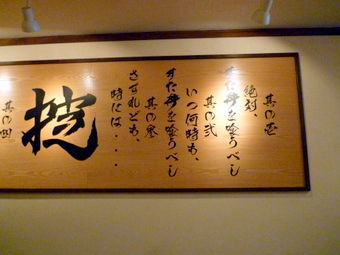 其の壱
絶対、
すた丼を喰うべし
其の弐
いつ何時も、
すた丼を喰うべし
其の参
されども、
時には・・・
掟
其の四